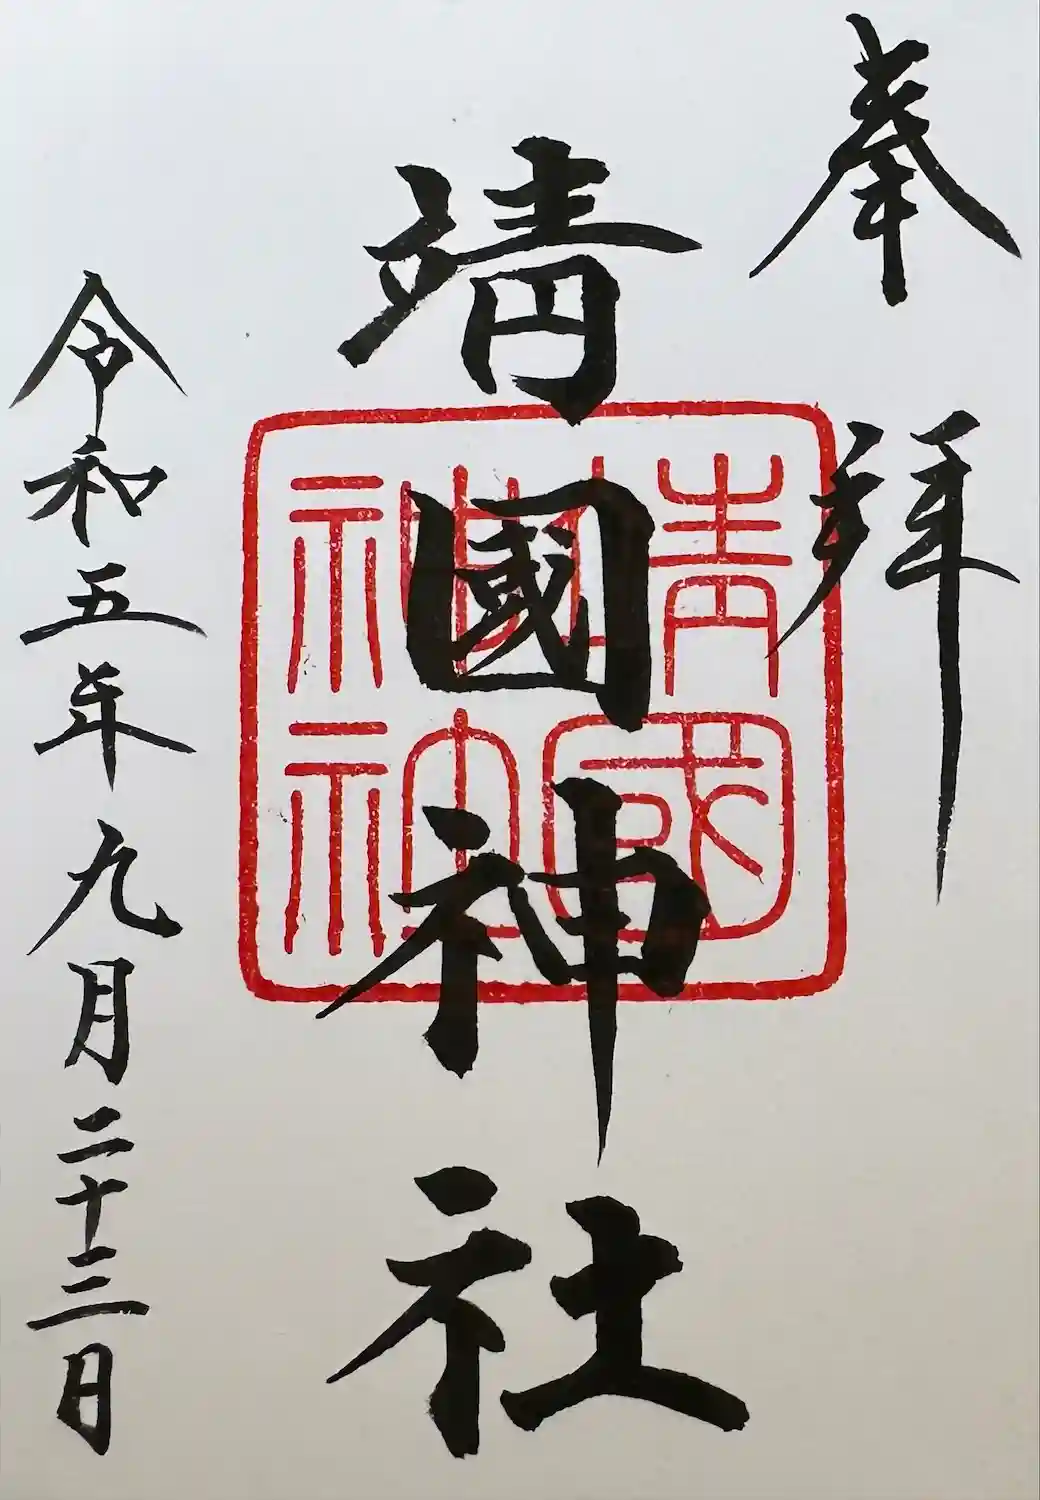 奉拝
靖國神社
令和五年九月二十三日
靖國
神社